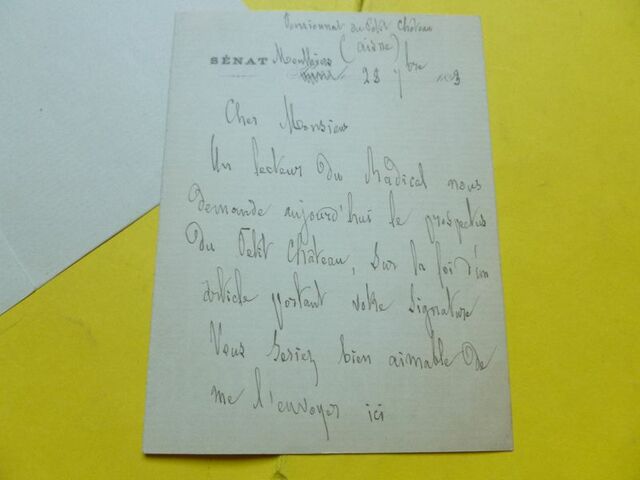 Pensionnat du Petit Château
(Aisne)
SÉNAT
28 7bre
Cher Monsieur
Un lecteur du Radical nous
demande aujourd'hui le prospectus
du Petit Château, sur la foi d'un
article portant votre signature
Vous seriez bien aimable de
me l'envoyer ici